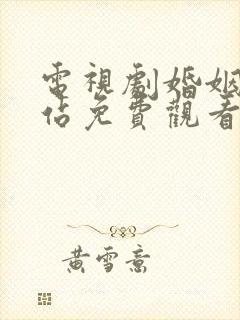 電視劇婚姻
估免費觀看
黃雪意